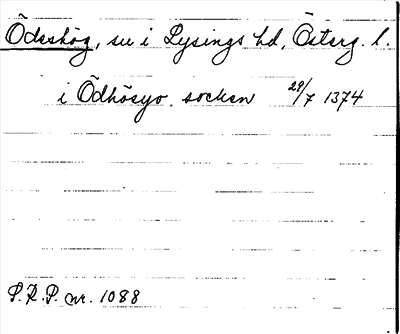 Ödeshög, sn i Lysings hd, Österg. l.
i Ödhösyo socken 29/7 1374
S.R.P. nr. 1088